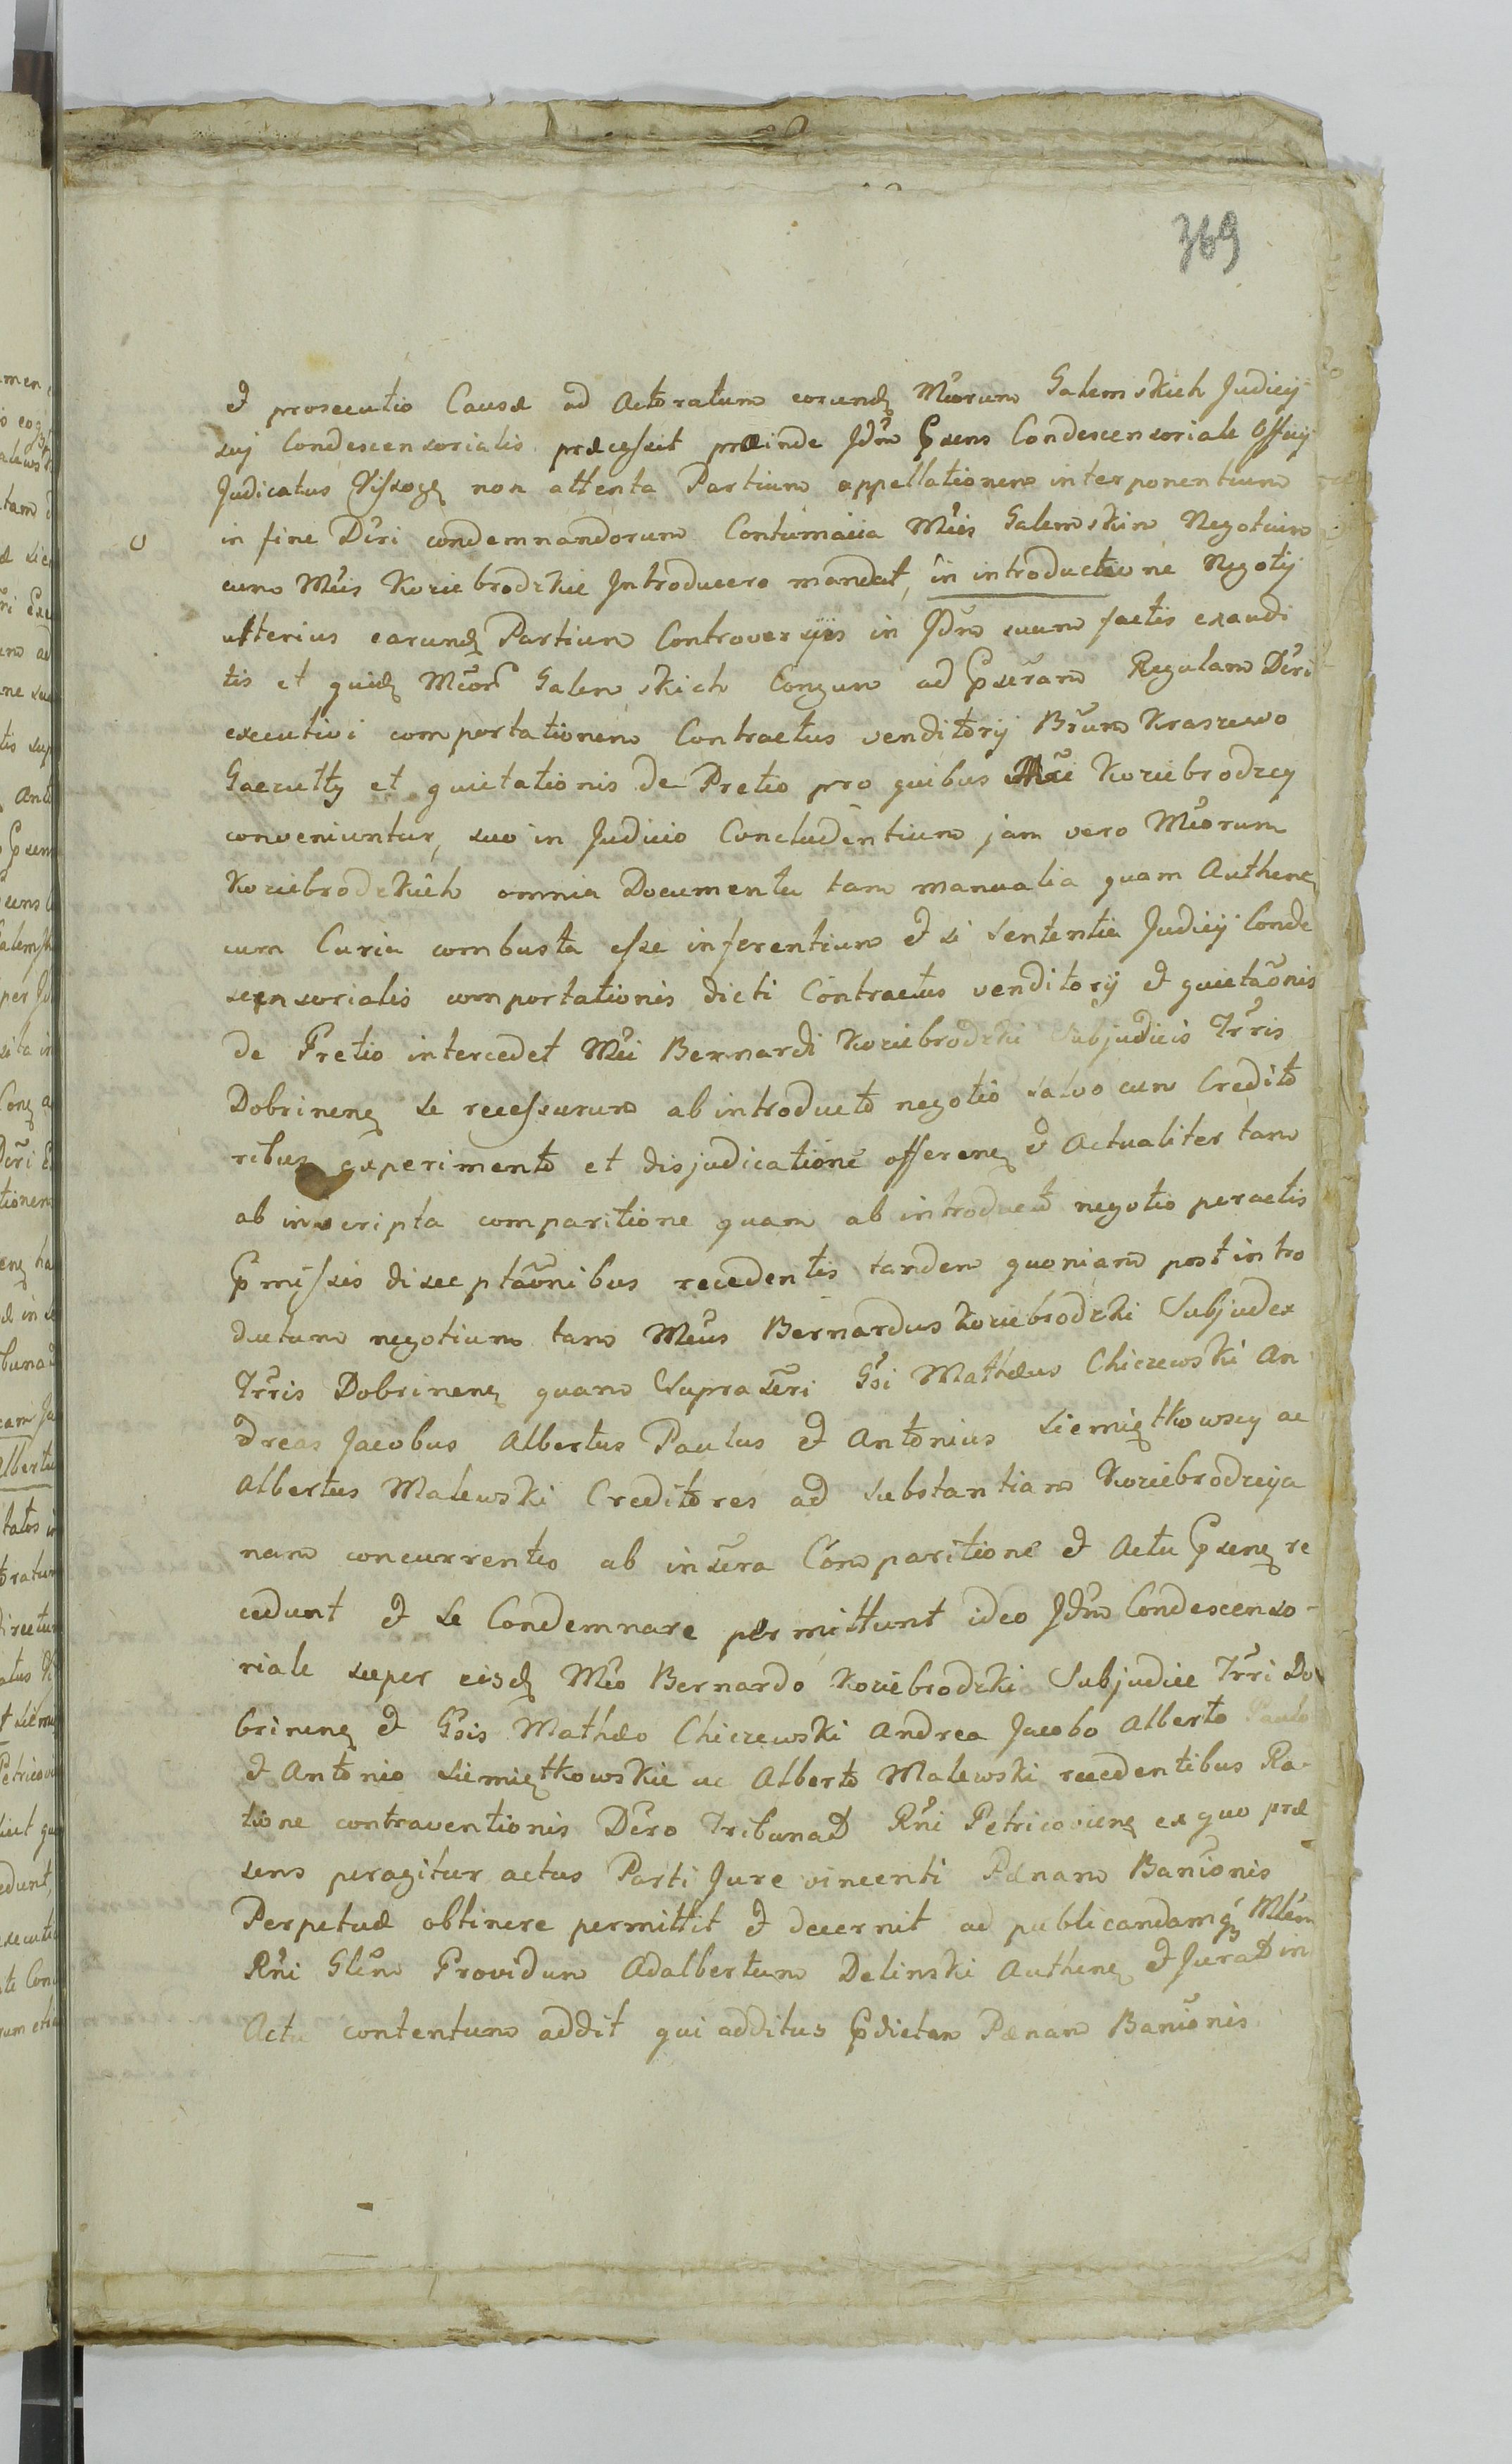 369
et prosecutio Causæ ad Actoratum eorundq Mĩorum Galemskich Judicij
suj Condescensorialis præcessit proinde Jdm Pxsens Condescensoriale Officij
Judicatus Vissogq non attenta Partium appellationem interponentium
in fine Dĩri condemnandorum Contumacia Mĩis Galemskim Negotium
cum Mĩis Koziebrodzkie Introducere mandat, in introductione Negotij
ulterius earundq Partium Controversijs in Jdm suum factis exaudi
tis et quidq Mĩor Galemskich Congum ad Pxseram Regulam Dĩri
executivi comportationem Contractus venditorij Brum Kraszewo
Gaczutty et quietationis de Pretio pro quibus Mĩi Koziebrodzcy
conveniuntur, suo in Judicio Concludentium jam vero Mĩorum
Koziebrodzkich omnia Documenta tam manualia quam Authenq
cum Curia combusta esse inferentium et si Sententia Judicij Conde
scensorialis comportationis dicti Contractus venditorij et quietaõnis
de Pretio intercedet Mĩi Bernardi Koziebrodzki Subjudicis Trris
Dobrinenq se recessurum ab introducto negotio salvo cum Credito
ribus experimento et disjudicatione offerenq et Actualiter tam
ab inscripta comparitione quam ab introducto negotio peractis
Pmissis disceptaõnibus recedentis tandem quoniam post intro
ductum negotium tam Mĩus Bernardus Koziebrodzki Subjudex
Trris Dobrinenq quam Suprasẽri Gõi Mathæus Chiczewski An
dreas Jacobus Albertus Paulus et Antonius Siemiętkowscy ac
Albertus Malewski Creditores ad substantiam Koziebrodzcija
nam concurrentes ab insẽra Comparitione et Actu Pxsenq re
cedunt et se Condemnare permittunt ideo Jdm Condescenso-
riale super eisdq Mĩo Bernardo Koziebrodzki Subjudice Trri Do
brinenq et Gõis Mathæo Chiczewski Andrea Jacobo Alberto Paulo
et Antonio Siemiętkowskie ac Alberto Malewski recedentibus Ra-
tione contraventionis Dĩro Tribunal Rñi Petricovienq ex quo præ
sens peragitur actus Parti Jure vincenti Pænam Baniõnis
Perpetuæ obtinere permittit et decernit ad publicandamq Mlẽm
Rñi Glẽm Providum Adalbertum Delinski Authenq et Jurat in
Actu contentum addit qui additus Pdictam Pænam Baniõnis